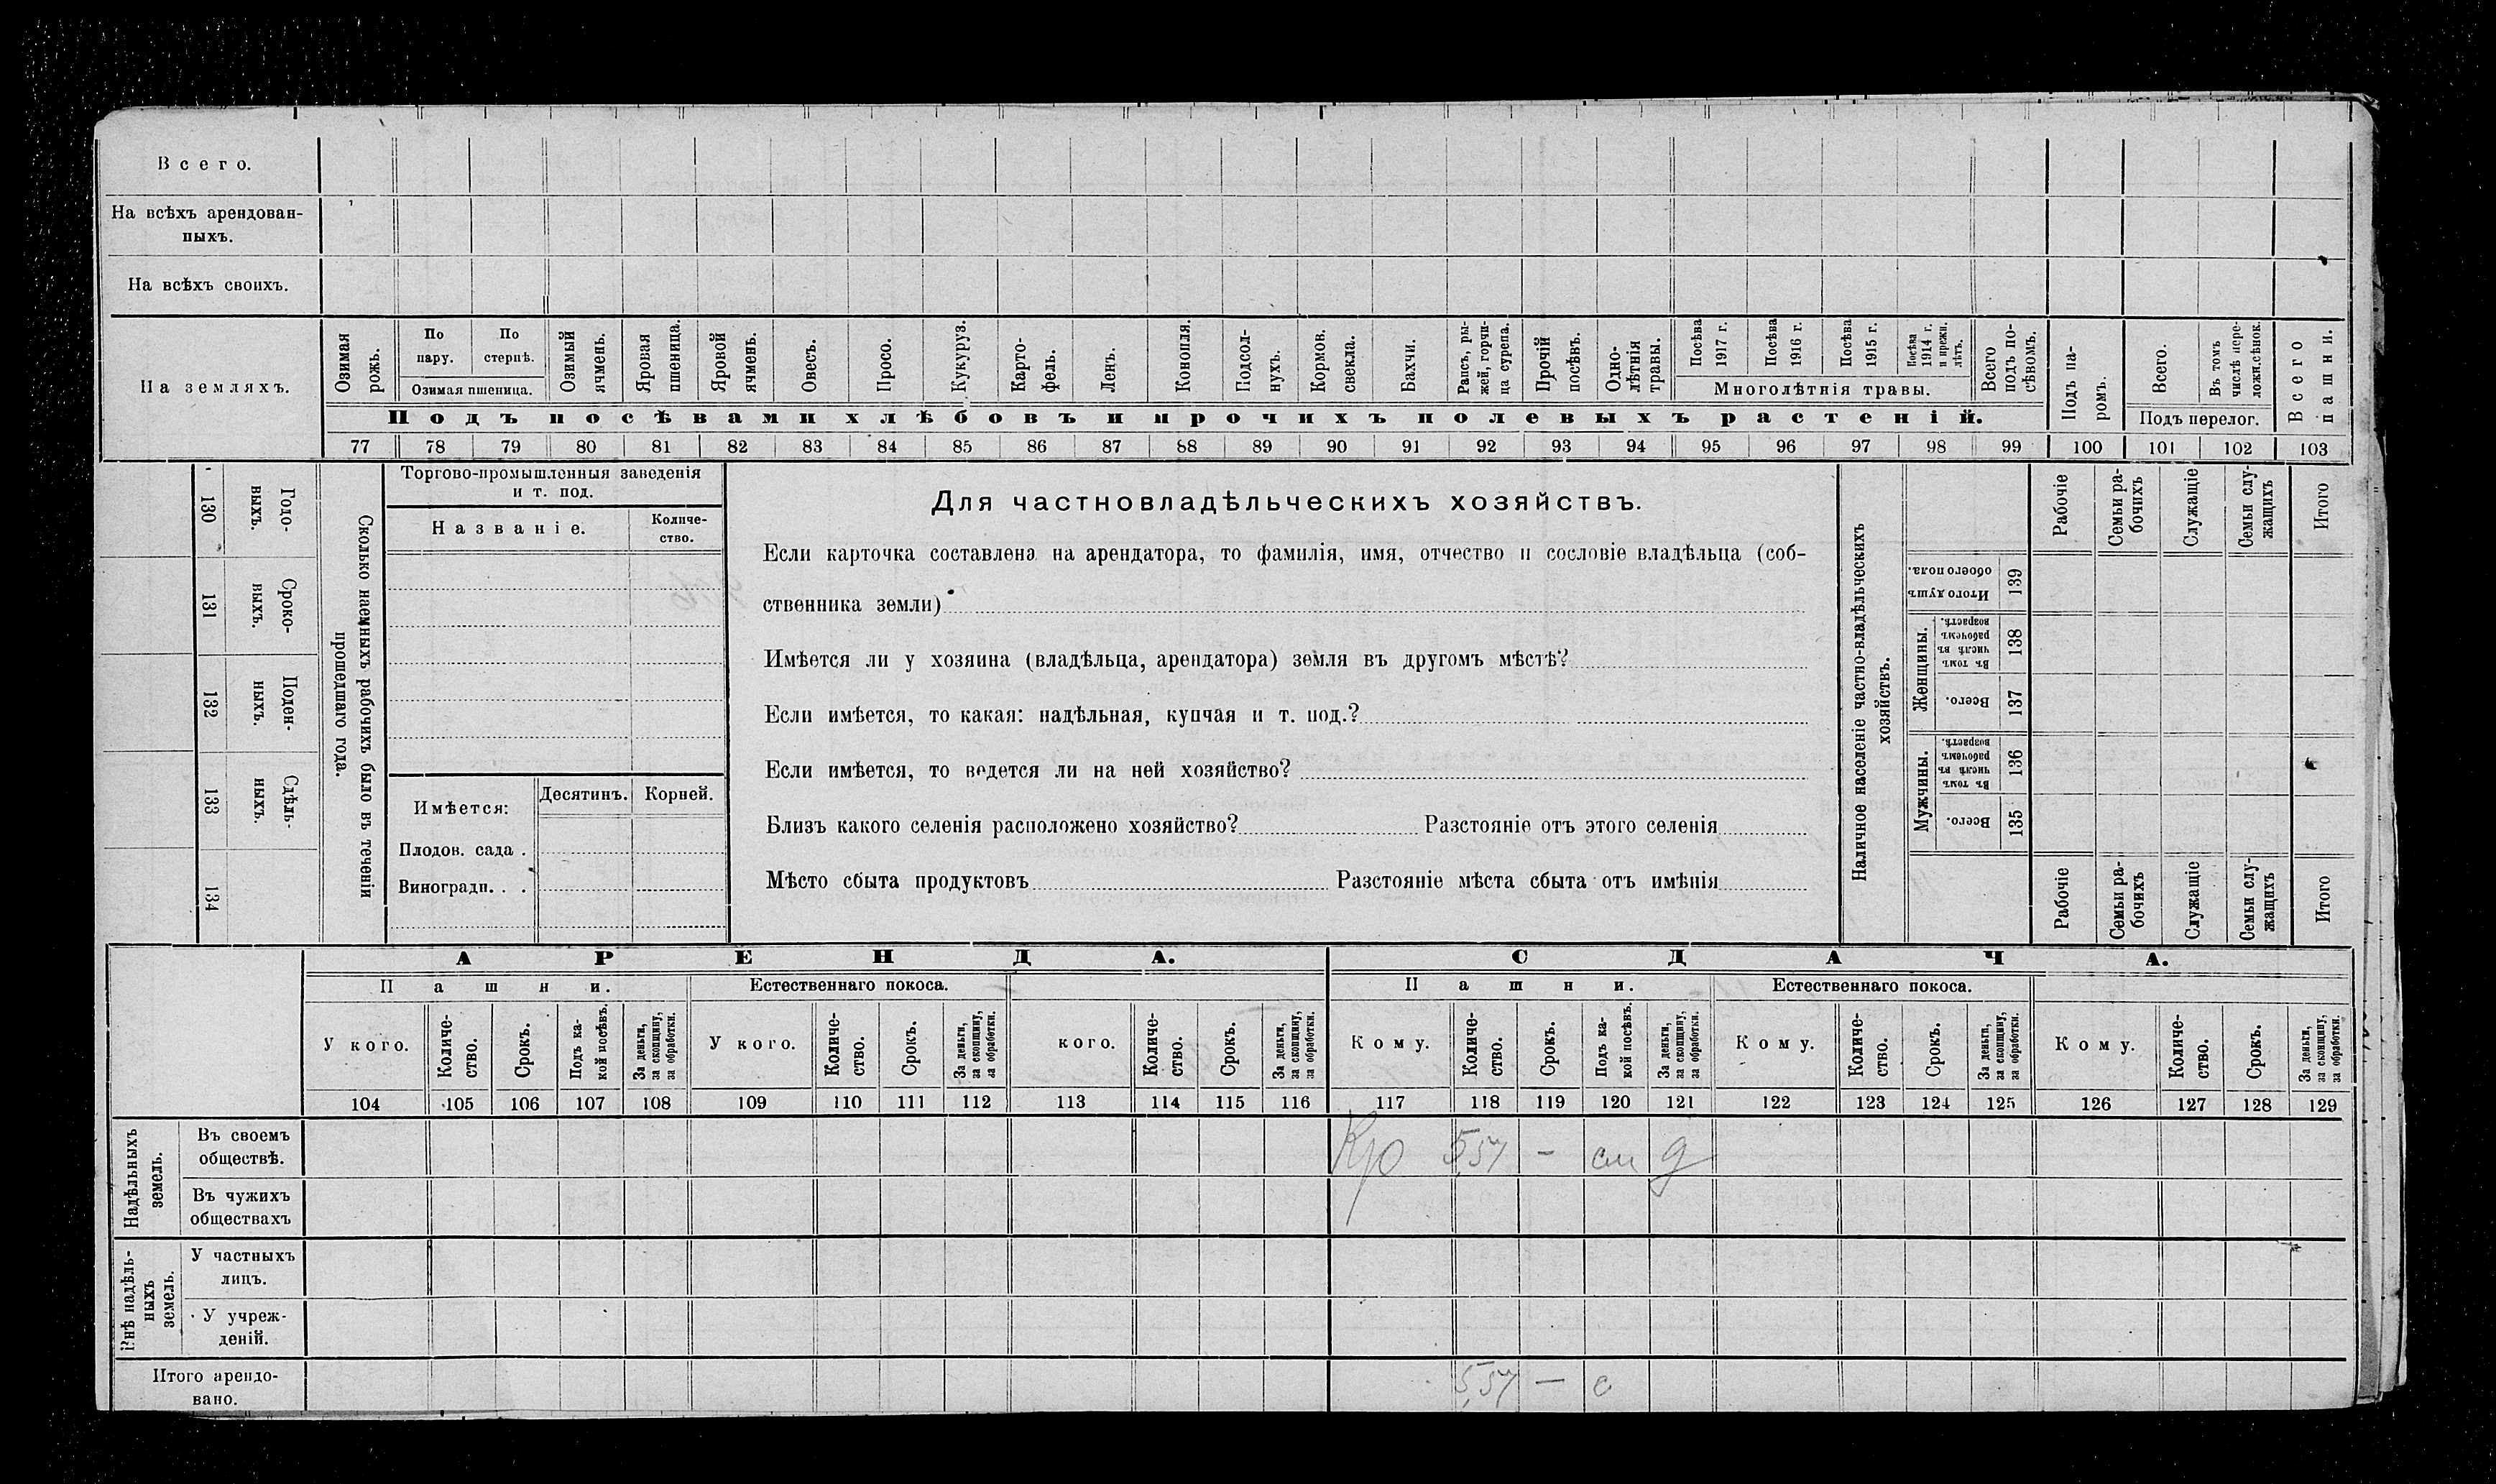 Всего.
На всѣхъ арендован-
ныхъ.
На всѣхъ своихъ.
На земляхъ.
Озимая рожь.
По пару.
По стернѣ.
Озимая пшеница.
Озимый ячмень.
Яровая пшеница.
Яровой ячмень.
Овесъ.
Просо.
Кукуруз.
Карто-
фель.
Ленъ.
Конопля.
Подсол-
нухъ.
Кормов. свекла.
Бахчи.
Рапсъ, ры-
жей, горчи-
ца сурепа.
Прочій посѣвъ.
Одно-
лѣтнія
травы.
Посѣва 1917 г.
Посѣва 1916 г.
Посѣва 1915 г.
Посѣва 1914 г. и прежн. лѣтъ.
Многолѣтнія травы.
Всего подъ по-
сѣвомъ.
Подъ посѣвами хлѣбовъ и прочихъ полевыхъ растеній.
Подъ па-
ромъ.
Всего.
Въ томъ числѣ пере-
ложн.сѣнок.
Подъ перелог.
Всего пашни.
77 78 79 80 81 82 83 84 85 86 87 88 89 90 91 92 93 94 95 96 97 98 99 100 101 102 103
130 Годо-
выхъ.
131 Сроко-
выхъ.
132 Поден-
ныхъ.
133 Сдѣль-
ныхъ.
134
Сколько наемныхъ рабочихъ было въ теченіи
прошедшаго года.
Торгово-промышленныя заведенія
и т. под.
Названіе.
Количе-
ство.
Имѣется:
Десятинъ.
Корней.
Плодов. сада .
Виноградн. . .
Для частновладѣльческихъ хозяйствъ.
Если карточка составлена на арендатора, то фамилія, имя, отчество и сословіе владѣльца (соб-
ственника земли)
Имѣется ли у хозяина (владѣльца, арендатора) земля въ другомъ мѣстѣ?
Если имѣется, то какая: надѣльная, купчая и т. под.?
Если имѣется, то ведется ли на ней хозяйство?
Близъ какого селенія расположено хозяйство? Разстояніе отъ этого селенія
Мѣсто сбыта продуктовъ Разстояніе мѣста сбыта отъ имѣнія
Наличное населеніе частно-владѣльческихъ
хозяйствъ.
Рабочіе
Семьи ра-
бочихъ
Служащіе
Семьи слу-
жащихъ
Итого
Итого душъ
обоего пола.
139
Женщины.
Въ томъ числѣ въ рабочемъ возрастѣ.
138
Всего.
137
Мужчины.
Въ томъ числѣ въ рабочемъ возрастѣ.
136
Всего.
135
Рабочіе
Семьи ра-
бочихъ
Служащіе
Семьи слу-
жащихъ
Итого
АРЕНДА.
СДАЧА.
Пашни.
Естественнаго покоса.
Пашни.
Естественнаго покоса.
У кого.
Количе-
ство.
Срокъ.
Подъ ка-
кой посѣвъ.
За деньги,
за скопщину,
за обработки.
У кого.
Количе-
ство.
Срокъ.
За деньги,
за скопщину,
за обработки.
кого.
Количе-
ство.
Срокъ.
За деньги,
за скопщину,
за обработки.
Кому.
Количе-
ство.
Срокъ.
Подъ ка-
кой посѣвъ.
За деньги,
за скопщину,
за обработки.
Кому.
Количе-
ство.
Срокъ.
За деньги,
за скопщину,
за обработки.
Кому.
Количе-
ство.
Срокъ.
За деньги,
за скопщину,
за обработки.
104 105 106 107 108 109 110 111 112 113 114 115 116 117 118 119 120 121 122 123 124 125 126 127 128 129
Надѣльныхъ
земель.
Въ своемъ
обществѣ.
Кр 5,57 — см д
Въ чужихъ
обществахъ
Внѣ надѣль-
ныхъ
земель.
У частныхъ
лицъ.
У учреж-
деній.
Итого арендо-
вано.
5,57 — с